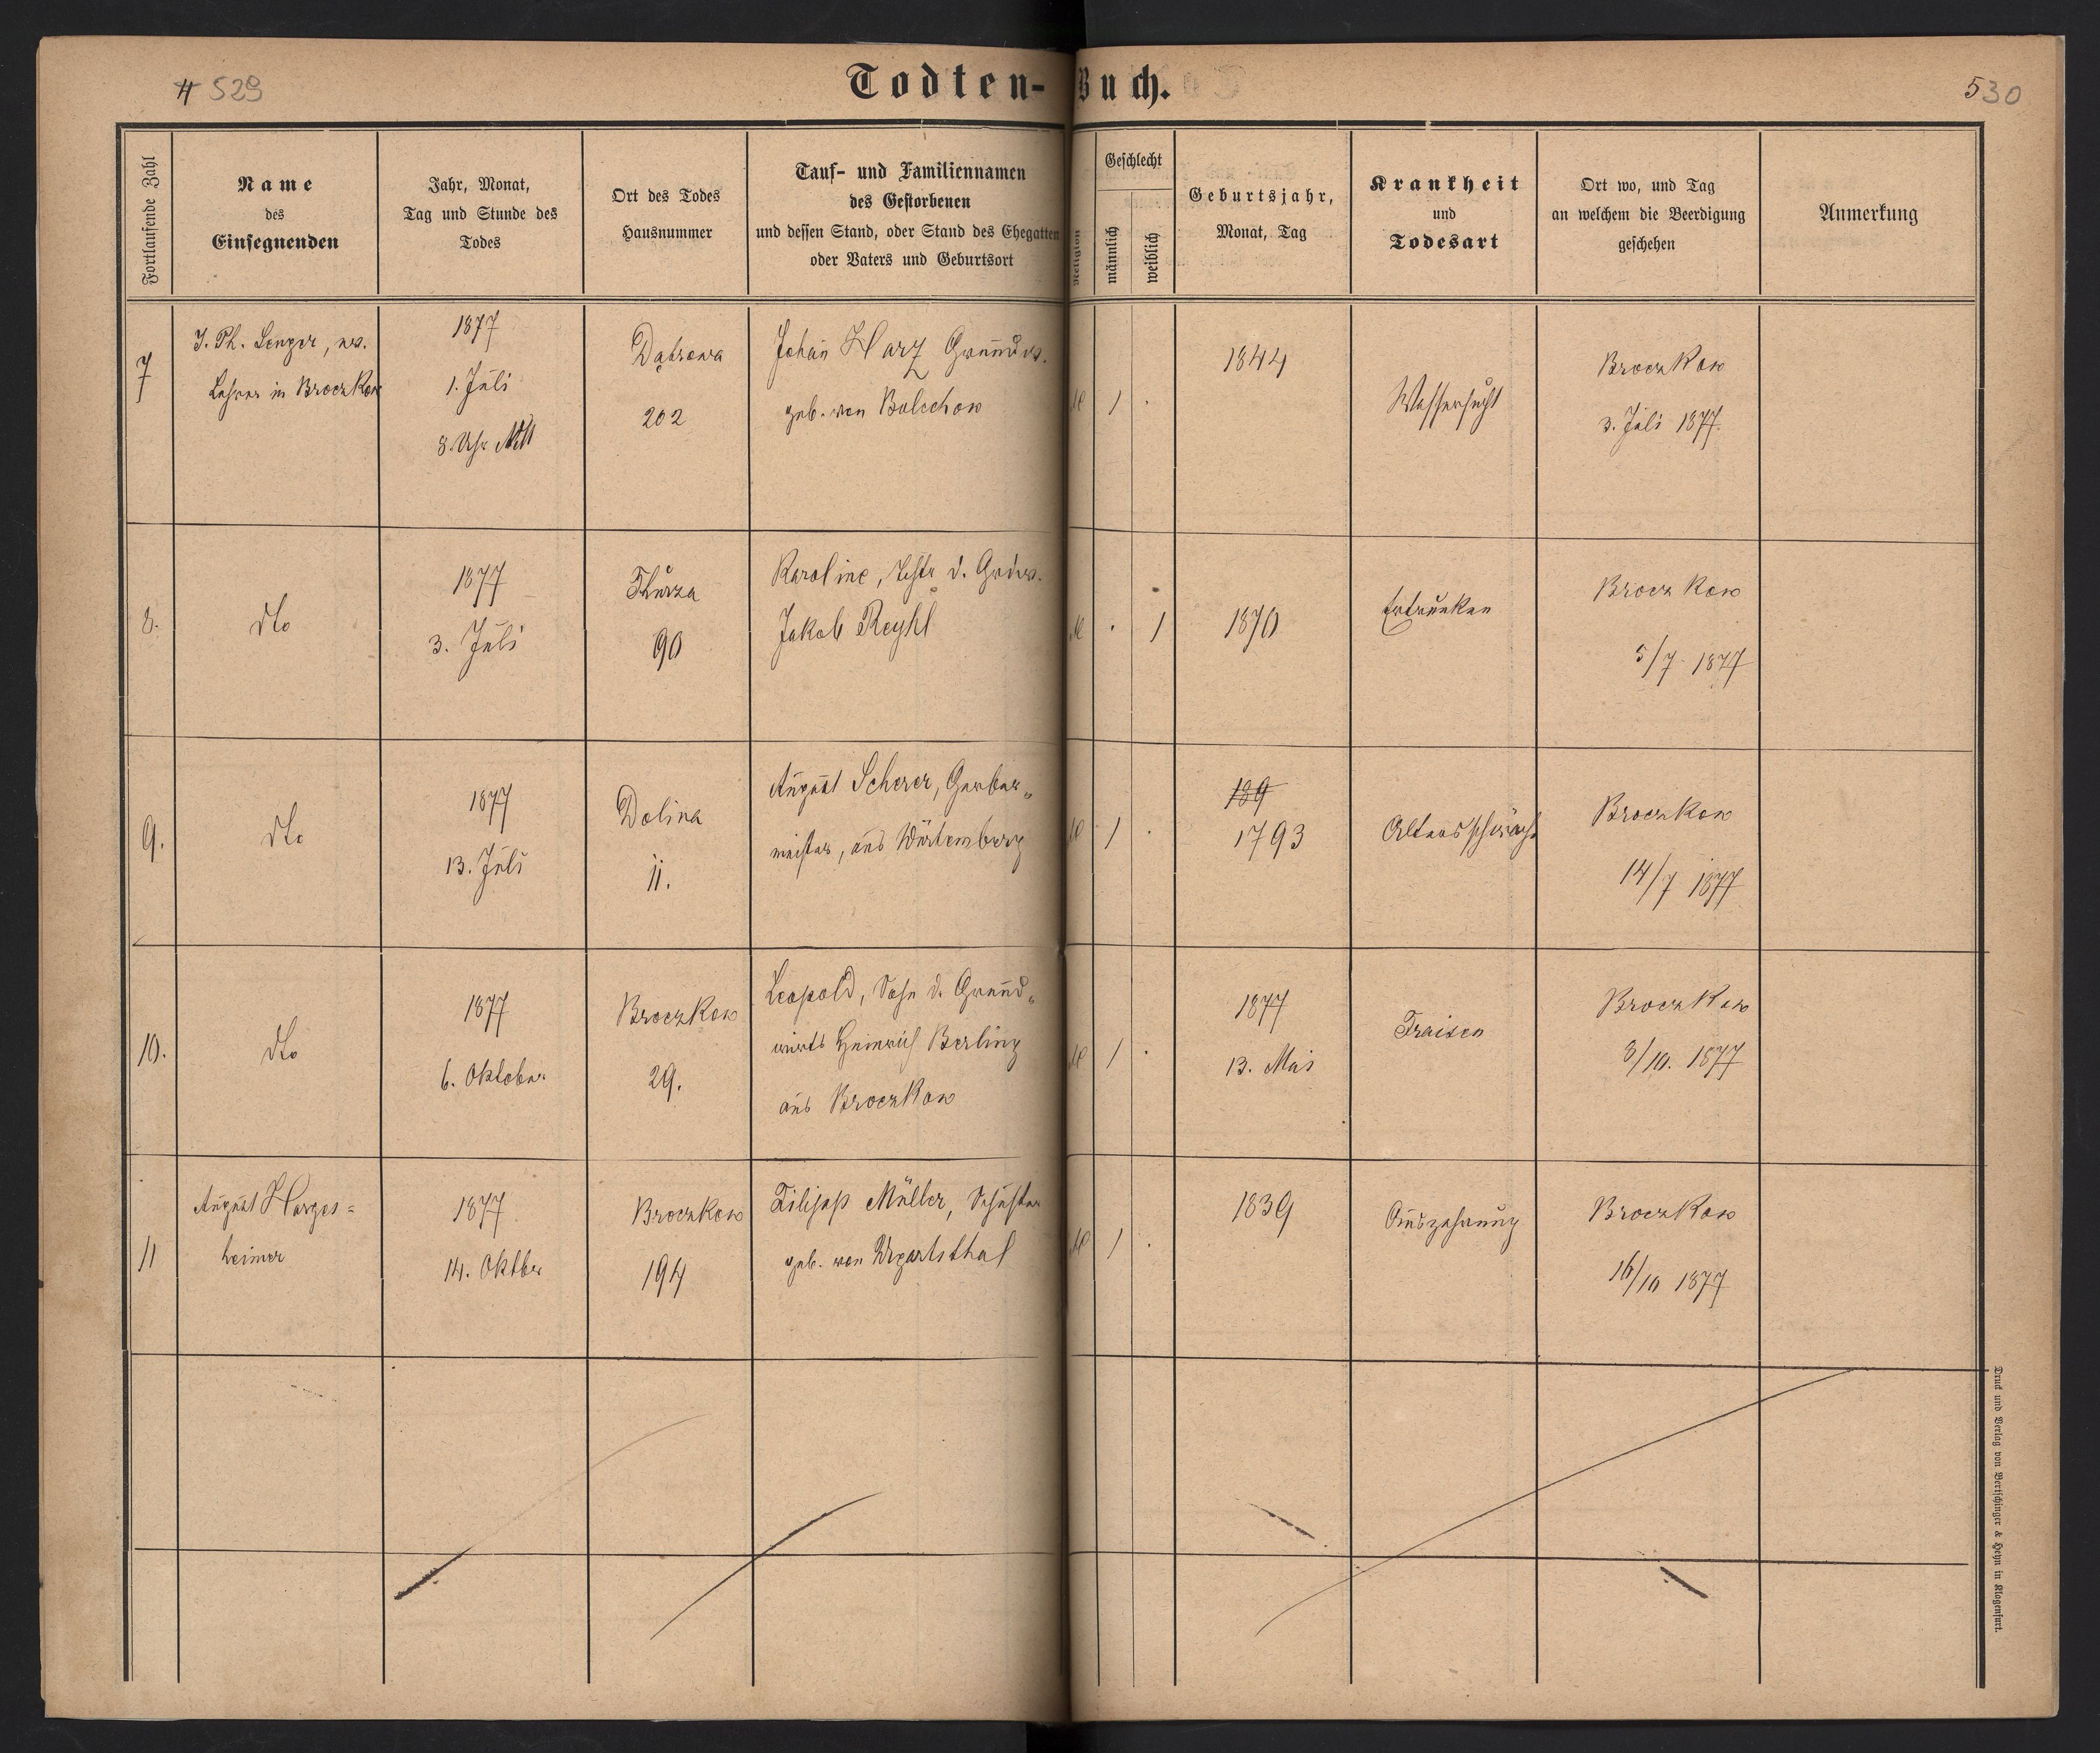 # 529
Todten-Buch.
530
Fortlaufende Zahl
Name
des
Einsegnenden
Jahr, Monat,
Tag und Stunde des
Todes
Ort des Todes
Hausnummer
Tauf- und Familiennamen
des Gestorbenen
und dessen Stand, oder Stand des Ehegatten
oder Vaters und Geburtsort
Religion
Geschlecht
männlich
weiblich
Geburtsjahr,
Monat, Tag
Krankheit
und
Todesart
Ort wo, und Tag
an welchem die Beerdigung
geschehen
Anmerkung
7
J. Ph. Lenger, ev.
Lehrer in Broczkow
1877
1. Juli
8 Uhr
Dąbrowa
202
Johan Harz Grundw.
geb. von Bolechow
1
1844
Wassersucht
Broczkow
3. Juli 1877.
8.
dto
1877
3. Juli
90
Karoline, Tchtr d. Grdw.
Jakob Reyhl
1
1870
Ertrunken
Broczkow
5/7 1877
9.
dto
1877
13. Juli
Dolina
11.
August Scherer, Gerber-
meister, aus Würtemberg
1
189
1793
Altersschwäche
Broczkow
14/7 1877
10.
dto
1877
6. Oktober
Broczkow
29.
Leopold, Sohn d. Grund-
wirts Heinrich Berling
aus Broczkow
1
1877
13. Mai
Fraisen
Broczkow
8/10. 1877
11
August Harges=
heimer
1877
14. Oktbr
Broczkow
194
Filipp Müller, Schuster
geb. von Ugartsthal
1
1839
Auszehrung
Broczkow
16/10 1877
Druck und Verlag von Bertschinger & Heyn in Klagenfurt.